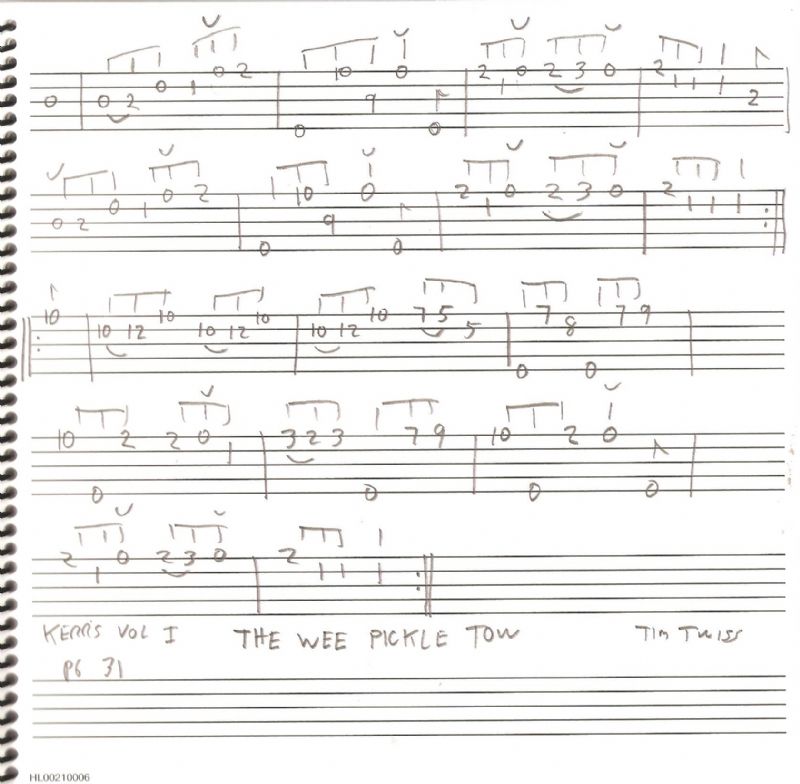 0 0 2 0 1 0 2 0 10 9 0 0 2 1 0 2 3 0 2 1 1 1 2
0 2 0 1 0 2 0 10 9 0 0 2 1 0 2 3 0 2 1 1 1
10 10 12 10 10 12 10 10 12 10 7 5 5 0 7 8 0 7 9
10 0 2 2 0 1 3 2 3 0 7 9 10 0 2 0 0
2 1 0 2 3 0 2 1 1 1
KERR'S VOL I THE WEE PICKLE TOW TIM TWISS
PG 31
HL00210006